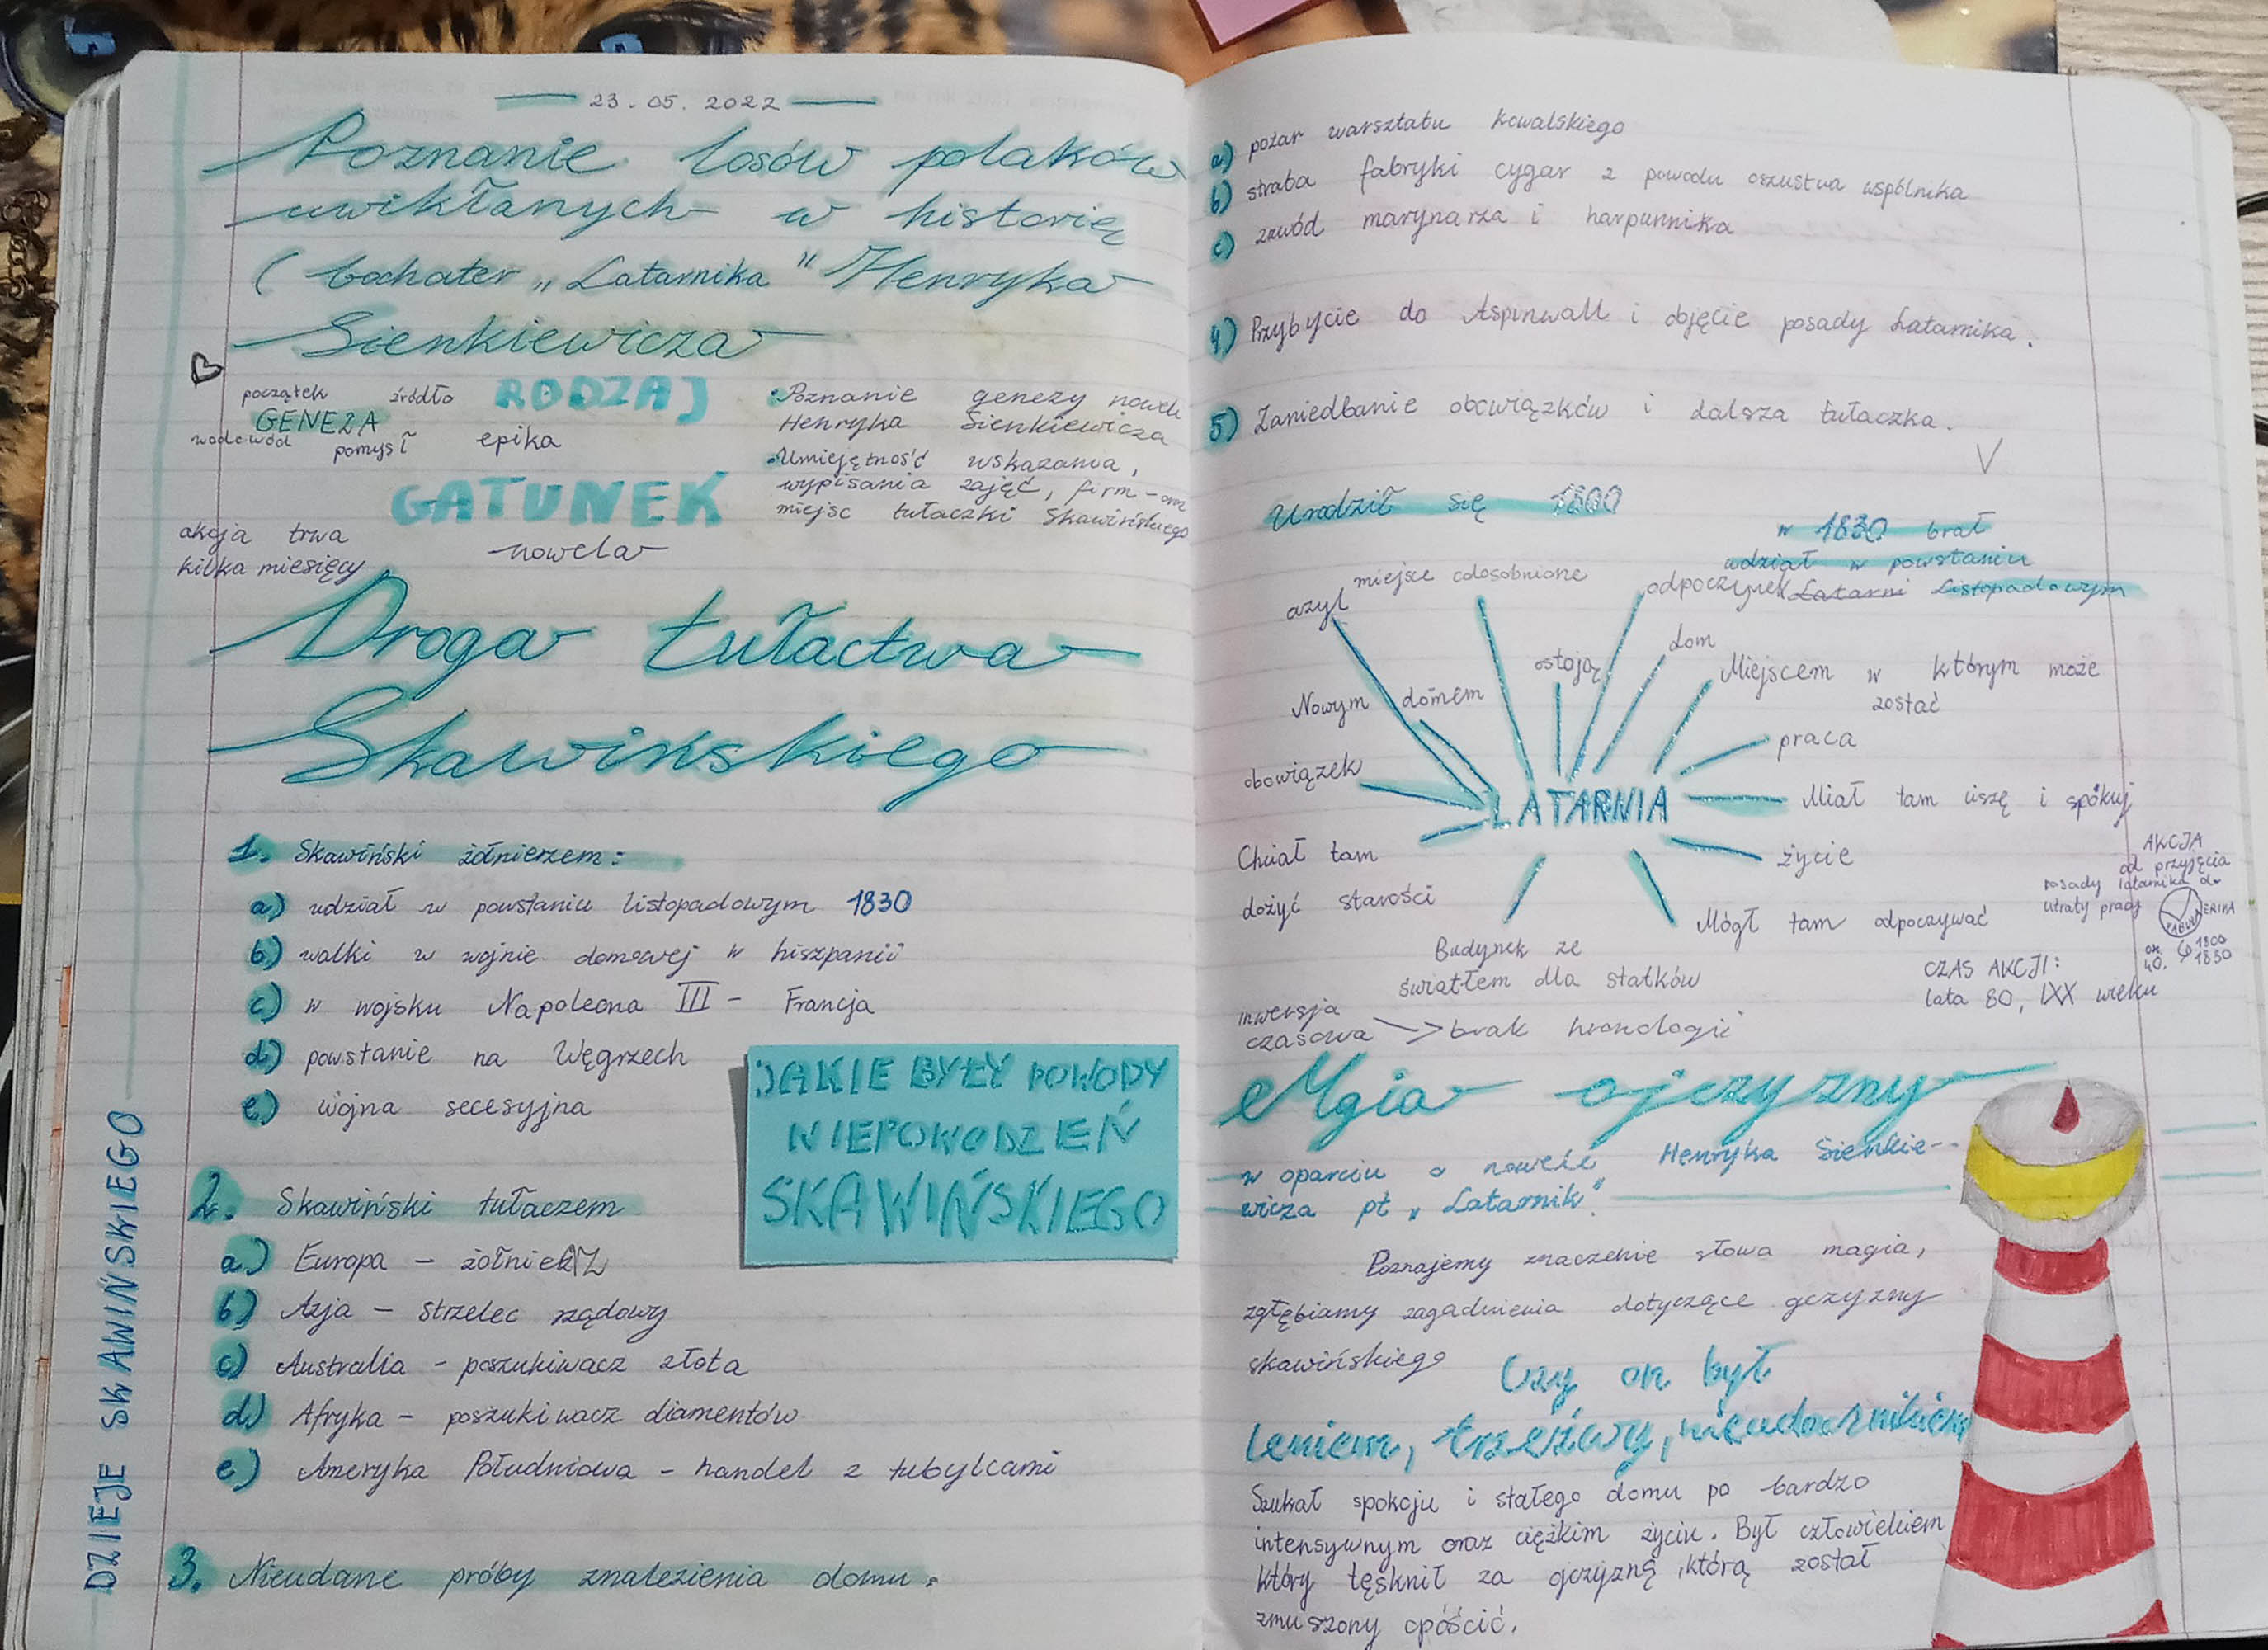 23.05.2022
Poznanie losów polaków
uwikłanych w historię
( bochater „Latarnika" Henryka
Sienkiewicza
początek źródło
GENEZA
wodowód pomysł
RODZAJ
epika
• Poznanie genezy noweli
Henryka Sienkiewicza
• Umiejętność wskazania,
wypisania zajęć, firm - oraz
miejsc tułaczki Skawińskiego
GATUNEK
nowela
akcja trwa
kilka miesięcy
Droga tułactwa
Skawińskiego
1. Skawiński żołnierzem:
a) udział w powstaniu listopadowym 1830
b) walki w wojnie domowej w hiszpanii
c) w wojsku Napoleona III - Francja
d) powstanie na Węgrzech
e) wojna secesyjna
JAKIE BYŁY POWODY
NIEPOWODZEŃ
SKAWIŃSKIEGO
2. Skawiński tułaczem
a) Europa - żołnierz
b) Azja - strzelec rządowy
c) Australia - poszukiwacz złota
d) Afryka - poszukiwacz diamentów
e) Ameryka Południowa - handel z tubylcami
3. Nieudane próby znalezienia domu:
DZIEJE SKAWIŃSKIEGO
a) pożar warsztatu kowalskiego
b) strata fabryki cygar z powodu oszustwa wspólnika
c) zawód marynarza i harpunnika
4) Przybycie do Aspinwall i objęcie posady Latarnika.
5) Zaniedbanie obowiązków i dalsza tułaczka.
Urodził się 1800
w 1830 brał
udział w powstaniu
Latarni Listopadowym
azyl
miejsce odosobnione
odpoczynek
ostoją
dom
Miejscem w którym może
zostać
Nowym domem
praca
obowiązek
LATARNIA
Miał tam ciszę i spokuj
Chciał tam
dożyć starości
życie
Mógł tam odpoczywać
Budynek ze
światłem dla statków
AKCJA
od przyjęcia
posady latarnika do
utraty pracy
FABUŁA
ok. 1800
40. 1830
CZAS AKCJI:
lata 80, IXX wieku
inwersja
czasowa -> brak hronologii
Mgia ojczyzny
w oparciu o nowelę Henryka Sienkie-
wicza pt „Latarnik".
Poznajemy znaczenie słowa magia,
zgłębiamy zagadnienia dotyczące ojczyzny
skawińskiego
Czy on był
leniem, trzeźwy, nieudacznikiem
Szukał spokoju i stałego domu po bardzo
intensywnym oraz ciężkim życiu. Był człowiekiem
który tęsknił za ojczyzną, którą został
zmuszony opóścić.